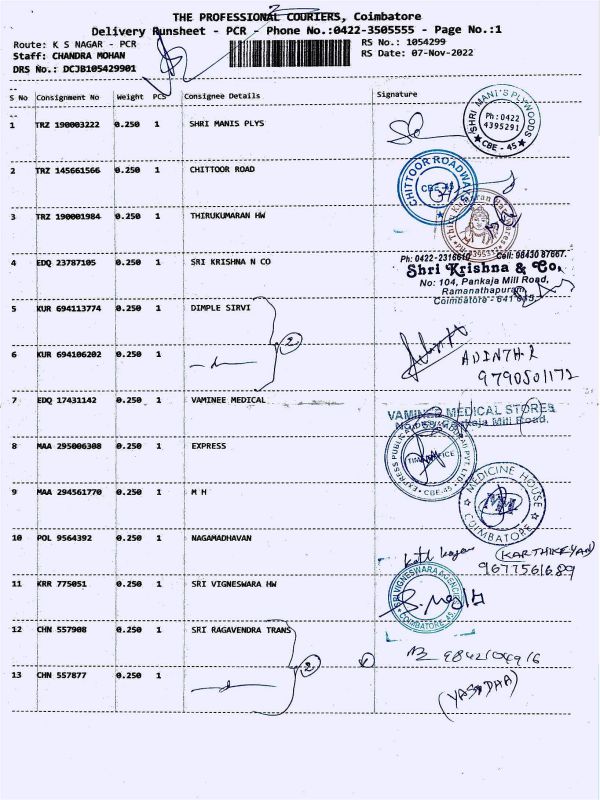 THE PROFESSIONAL COURIERS, Coimbatore
Delivery Runsheet - PCR - Phone No.:0422-3505555 - Page No.:1
Route: K S NAGAR - PCR RS No.: 1054299
Staff: CHANDRA MOHAN RS Date: 07-Nov-2022
DRS No.: DCJB105429901
S No Consignment No Weight PCS Consignee Details Signature
1 TRZ 190003222 0.250 1 SHRI MANIS PLYS
SHRI MANI'S PLYWOODS
Ph: 0422
4395291
CBE - 45
2 TRZ 145661566 0.250 1 CHITTOOR ROAD
CHITTOOR ROADWAYS
CBE-45
3 TRZ 190001984 0.250 1 THIRUKUMARAN HW
4 EDQ 23787105 0.250 1 SRI KRISHNA N CO
Ph: 0422-2316610 Cell: 98430 87667.
Shri Krishna & Co.
No: 104, Pankaja Mill Road,
Ramanathapuram
Coimbatore - 641 045
5 KUR 694113774 0.250 1 DIMPLE SIRVI
2
6 KUR 694106202 0.250 1 -d-
9790501172
7 EDQ 17431142 0.250 1 VAMINEE MEDICAL
VAMINEE MEDICAL STORES
Mill Road,
8 MAA 295006308 0.250 1 EXPRESS
CBE-45
9 MAA 294561770 0.250 1 M H
MEDICINE HOUSE
COIMBATORE
10 POL 9564392 0.250 1 NAGAMADHAVAN
(KARTHIKEYAN)
9677561689
11 KRR 775051 0.250 1 SRI VIGNESWARA HW
SRI VIGNESWARA AGENCIES
COIMBATORE-45
12 CHN 557908 0.250 1 SRI RAGAVENDRA TRANS
2
9842104916
13 CHN 557877 0.250 1 -d-
(YASODHA)